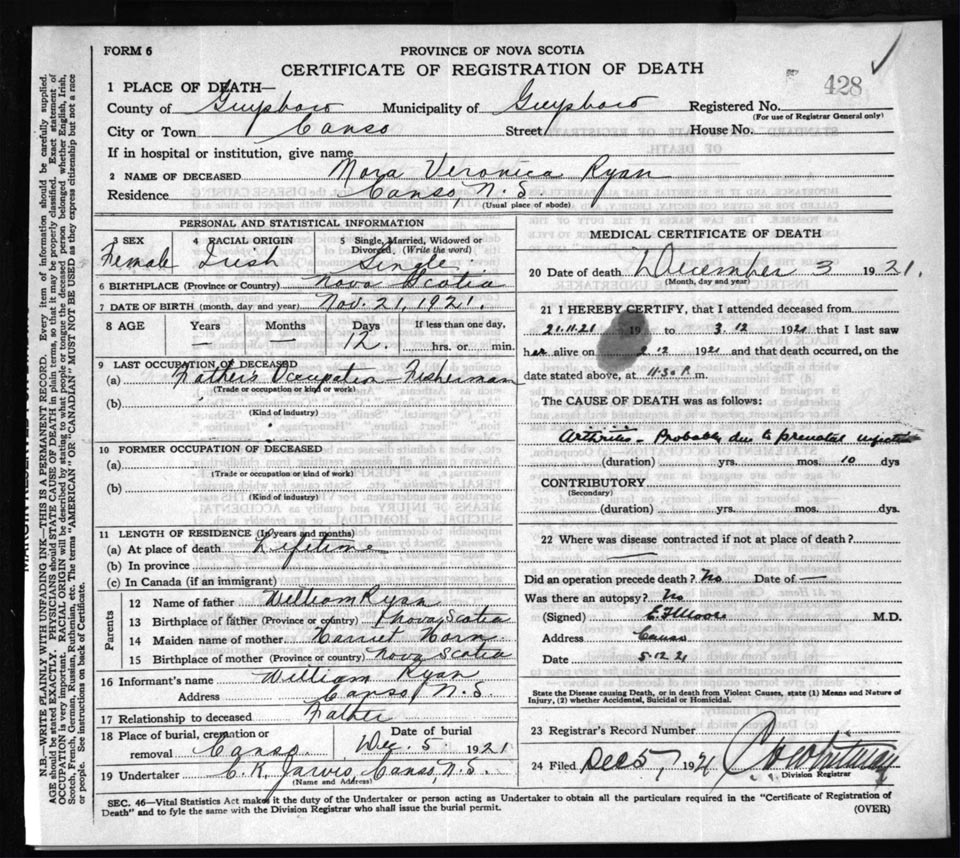 FORM 6
PROVINCE OF NOVA SCOTIA
CERTIFICATE OF REGISTRATION OF DEATH
428
1 PLACE OF DEATH—
County of Guysboro Municipality of Guysboro Registered No.
(For use of Registrar General only)
City or Town Canso Street House No.
If in hospital or institution, give name
2 NAME OF DECEASED Nora Veronica Ryan
Residence Canso, N.S
(Usual place of abode)
PERSONAL AND STATISTICAL INFORMATION
3 SEX 4 RACIAL ORIGIN 5 Single, Married, Widowed or Divorced, (Write the word)
Female Irish Single
6 BIRTHPLACE (Province or Country) Nova Scotia
7 DATE OF BIRTH (month, day and year) Nov. 21, 1921.
8 AGE Years Months Days If less than one day,
— — 12. hrs. or min.
9 LAST OCCUPATION OF DECEASED
(a) Father's Occupation Fisherman
(Trade or occupation or kind or work)
(b)
(Kind of industry)
10 FORMER OCCUPATION OF DECEASED
(a)
(Trade or occupation or kind of work)
(b)
(Kind of industry)
11 LENGTH OF RESIDENCE (In years and months)
(a) At place of death Lifetime
(b) In province
(c) In Canada (if an immigrant)
Parents
12 Name of father William Ryan
13 Birthplace of father (Province or country) Nova Scotia
14 Maiden name of mother Harriet Horn
15 Birthplace of mother (Province or country) Nova Scotia
16 Informant's name William Ryan
Address Canso N.S
17 Relationship to deceased Father
18 Place of burial, cremation or removal Canso. Date of burial Dec. 5 1921
19 Undertaker C. K. Jarvis, Canso N.S.
(Name and Address)
MEDICAL CERTIFICATE OF DEATH
20 Date of death December 3 1921.
(Month, day and year)
21 I HEREBY CERTIFY, that I attended deceased from
21.11.21 19 to 3.12 1921 that I last saw
her alive on 2.12 1921 and that death occurred, on the
date stated above, at 11.30 P. m.
The CAUSE OF DEATH was as follows:
Arthritis - Probably due to prenatal infection
(duration) yrs. mos. 10 dys
CONTRIBUTORY
(Secondary)
(duration) yrs. mos. dys.
22 Where was disease contracted if not at place of death?
Did an operation precede death? No Date of —
Was there an autopsy? No
(Signed) E F Moore M.D.
Address Canso
Date 5.12 21
State the Disease causing Death, or in death from Violent Causes, state (1) Means and Nature of Injury, (2) whether Accidental, Suicidal or Homicidal.
23 Registrar's Record Number
24 Filed Dec 5, 1921
Division Registrar
SEC. 46—Vital Statistics Act makes it the duty of the Undertaker or person acting as Undertaker to obtain all the particulars required in the "Certificate of Registration of
Death" and to fyle the same with the Division Registrar who shall issue the burial permit. (OVER)
N.B.—WRITE PLAINLY WITH UNFADING INK—THIS IS A PERMANENT RECORD. Every item of information should be carefully supplied.
AGE should be stated EXACTLY. PHYSICIANS should STATE CAUSE OF DEATH in plain terms, so that it may be properly classified. Exact statement of
OCCUPATION is very important. RACIAL ORIGIN will be described by stating to what people or tongue the deceased person belonged whether English, Irish,
Scotch, French, German, Russian, Ruthenian, etc. The terms "AMERICAN" OR "CANADIAN" MUST NOT BE USED as they express citizenship but not a race
or people. See instructions on back of Certificate.